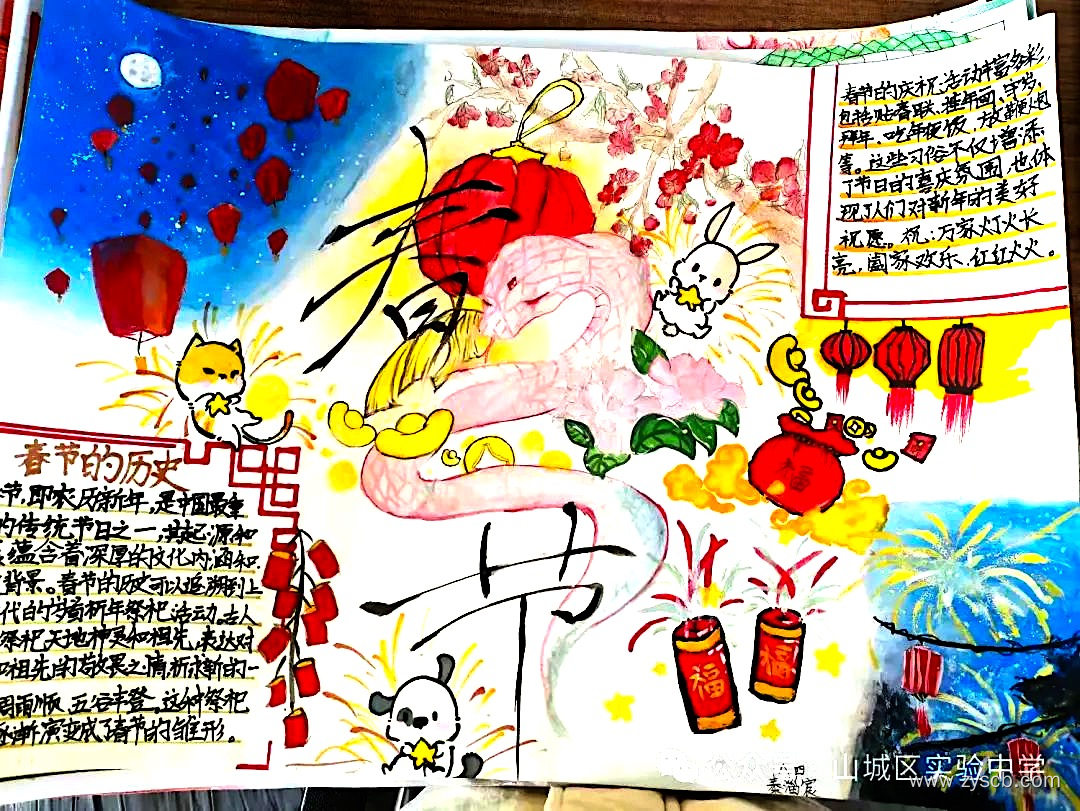 春节
春节的庆祝活动丰富多彩,
包括贴春联、挂年画、守岁、
拜年、吃年夜饭、放鞭炮
等。这些习俗不仅增添
了节日的喜庆氛围,也体
现了人们对新年的美好
祝愿。祝:万家灯火长
亮,阖家欢乐、红红火火。
春节的历史
节,即农历新年,是中国最重
的传统节日之一,其起源和
蕴含着深厚的文化内涵和
背景。春节的历史可以追溯到上
代的岁首祈年祭祀活动。古人
祭祀天地神灵和祖先,表达对
祖先的敬畏之情祈求新的一
调雨顺、五谷丰登。这种祭祀
渐演变成了春节的雏形。
福
福
福
六四
秦涵宸
山城区实验中学
www.zyscb.com